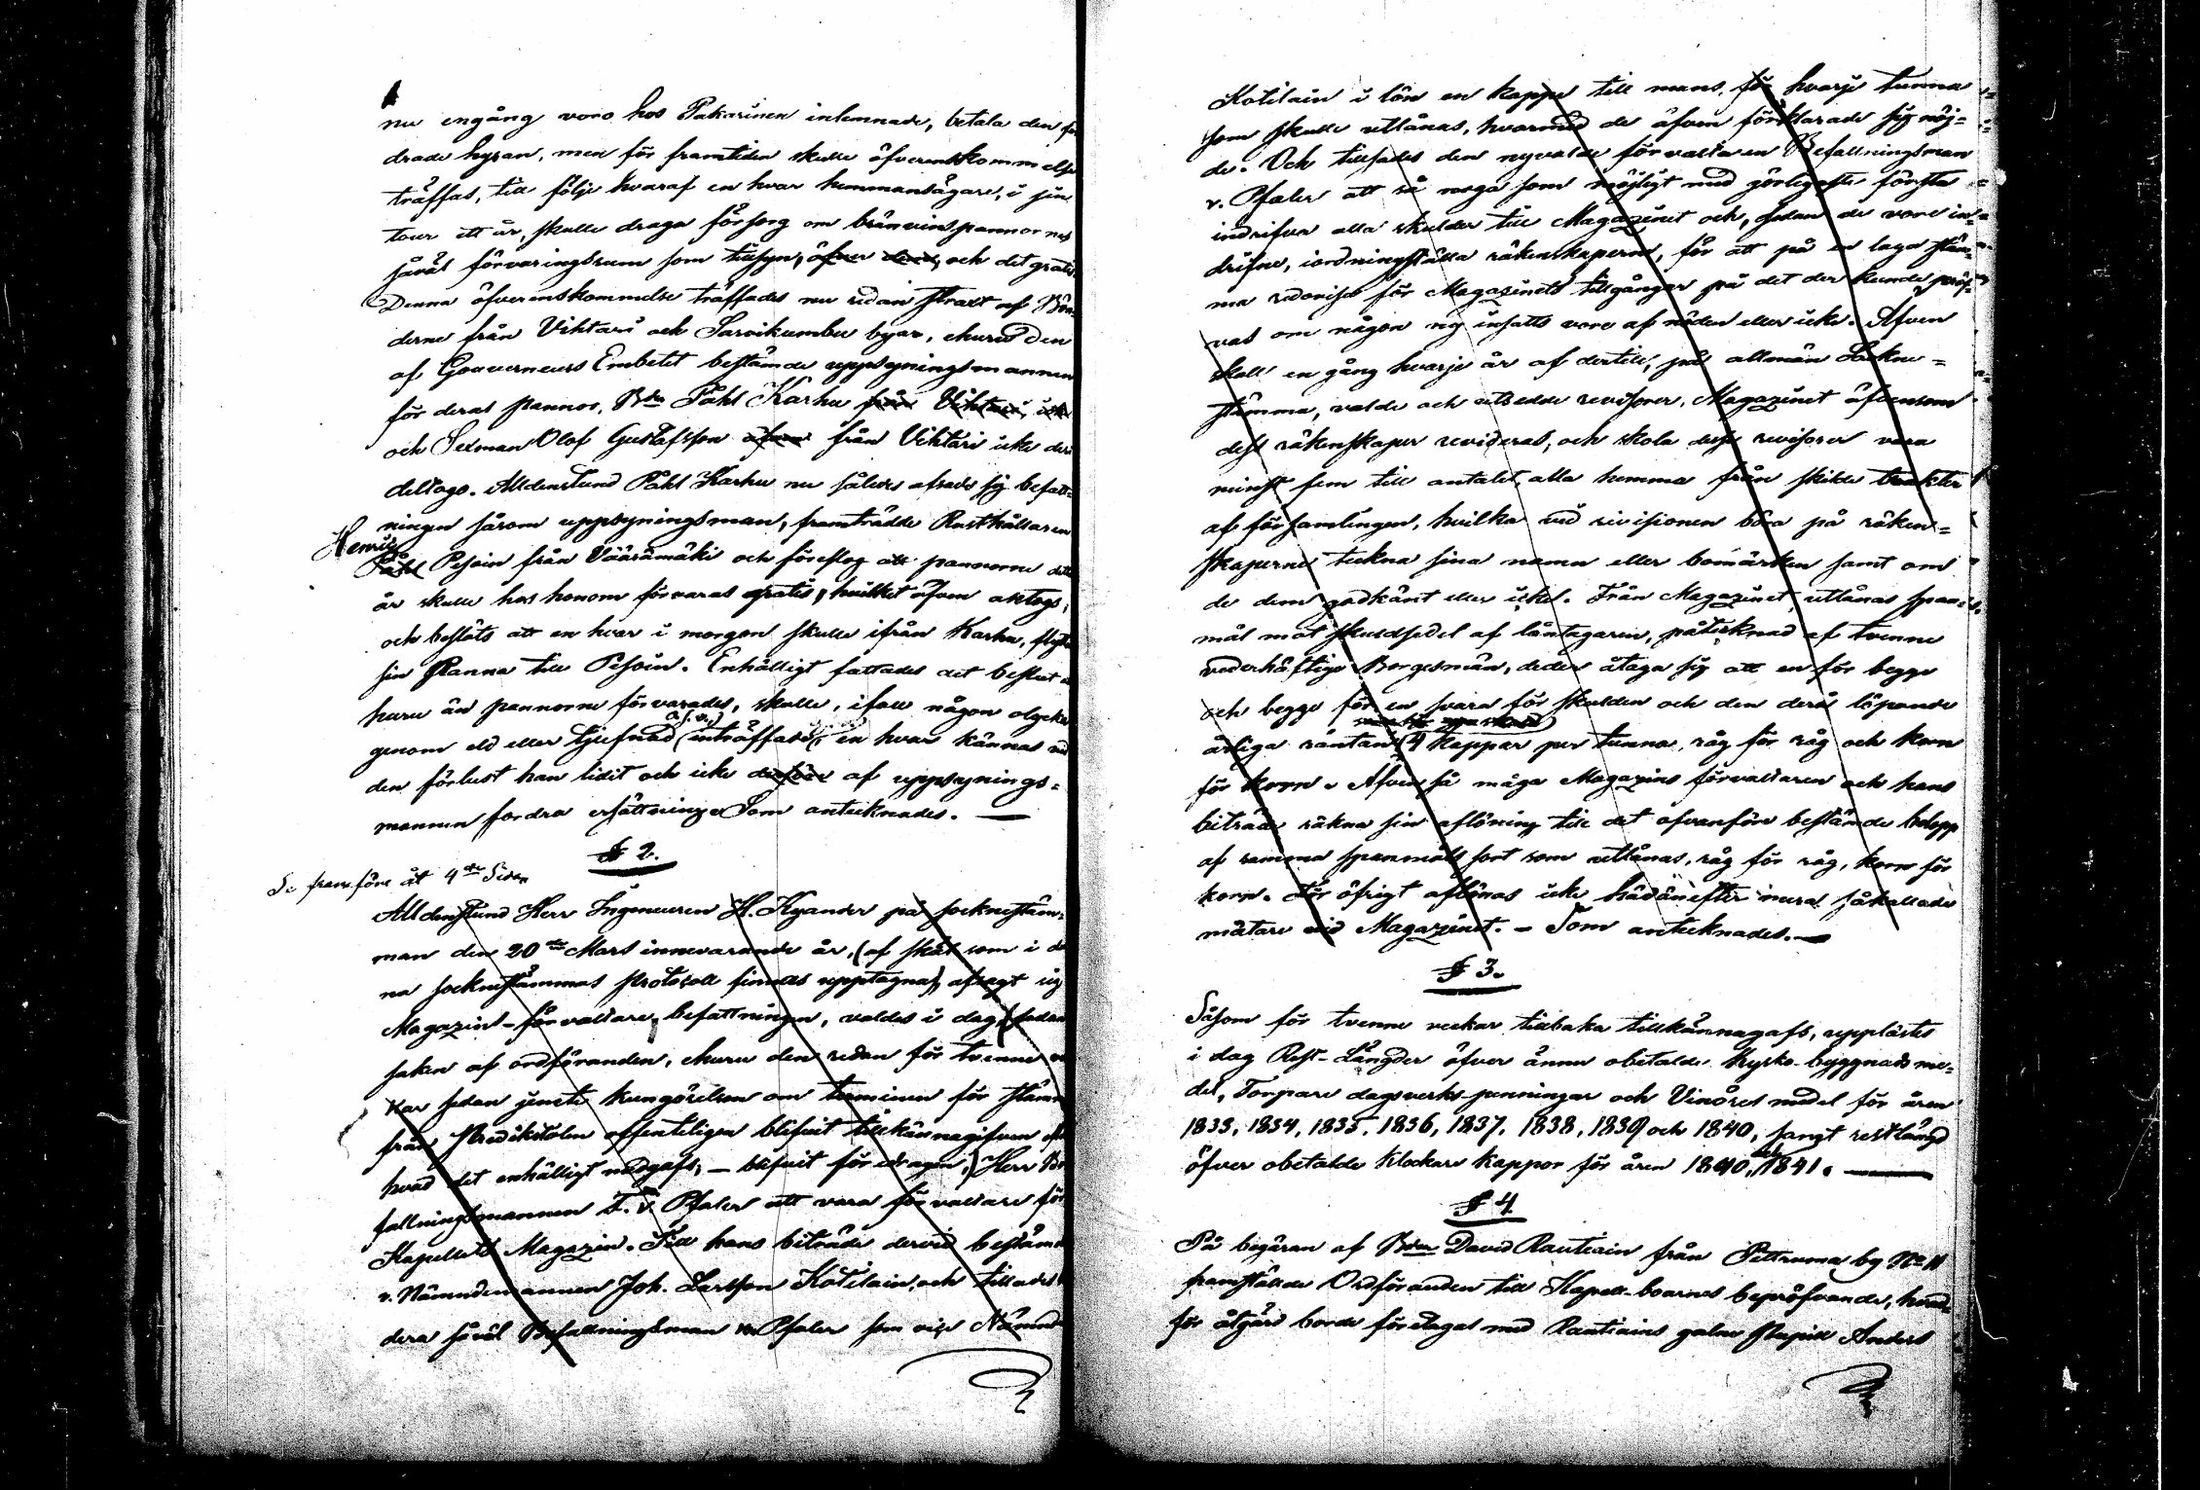 nu engång voro hos Pakarinen inlemnade, betala den for
drade hyran, men för framtiden skulle öfverenskommelse
träffas, till följe hvaraf en hvar hemmansägare, i sin
tour ett år, skulle draga försorg om bränvinspannornes
såväl förvaringsrum som tillsyn, öfver dem, och det gratis
Denna öfverenskommelse träffades nu redan strax af Bön
derne från Vihtari och Sarvikumbu byar, ehuru den
af Gouverneurs Embetet bestämde uppsyningsmannen
för deras pannor, Bdn Påhl Karhu från Vihtari, icke
och Sexman Olof Gustafsson äfven från Vihtari icke der
deltogo. Alldenstund Påhl Karhu nu således afsade sig befatt-
ningen såsom uppsyningsman, framträdde Rusthållaren
Henrik
Påhl Pesoin från Väärämäki och föreslog att pannorne detta
år skulle hos honom förvaras gratis, hvilket äfven antogs,
och beslöts att en hvar i morgon skulle ifrån Karhu, flytta
sin Panna till Pesoin. Enhälligt fattades det beslut a
huru än pannorne förvarades, skulle, ifall någon olycka
genom eld eller tjufnad (inträffade, en hvar kännas vid
den förlust han lidit och icke derföre af uppsynings-
mannen fordra ersättning. Som antecknades. —
§ 2.
Se framföre åt 4de Sidan
Alldenstund Herr Ingenieuren H. Kyander på socknestäm-
man den 20de Mars innevarande år, (af skäl som i de
na sockenstämmas Protocoll finnas upptagna), afsagt sig
Magazins-förvaltare befattningen, valdes i dag, (sedan
saken af ordföranden, ehuru den redan för tvenne ve
kor sedan jemte kungörelsen om terminen för stämm
från Predikstolen offentligen blifvit tillkännagifven eft
hvad det enhälligt medgafs, — blifvit föredragen,) Herr Be
fallningsmannen T. v. Pfaler att vara förvaltare för
Kapellets Magazin. Till hans biträde dervid bestämd
v. Nämndemannen Joh. Larsson Kotilain, och tillades
dera såväl Befallningsman v. Pfaler som vice Nämnd
Kotilain i lön en kappe till mans, för hvarje tunna
som skulle utlånas, hvarmed de äfven förklarade sig nöj-
de. Och tillsades den nyvalde förvaltaren Befallningsman
v. Pfaler att så noga som möjligt med görligaste första
indrifva alla skulder till Magazinet och, sedan de voro in-
drifne, iordningställa räkenskaperne, för att på en laga stäm-
ma redovisa för Magazinets tillgångar på det der kunde pröf-
vas om någon ny insatts vore af nöden eller icke. Äfven
skall en gång hvarje år af dertill, på allmän Sockne-
stämma, valde och utsedde revisorer, Magazinet äfvensom
dess räkenskaper revideras, och skola desse revisorer vara
minst fem till antalet, alla hemma från skilde trakter
af församlingen, hvilka vid revisionen böra på räken-
skaperne teckna sina namn eller bomärken samt om
de dem godkänt eller icke. Från Magazinet utlånas span-
mål mot skuldsedel af låntagaren, påtecknad af tvenne
vederhäftige Borgesmän, de der åtaga sig att en för begge
och begge för en svara för skulden och den derå löpande
årliga räntan (4 kappar per tunna, råg för råg och korn
för korn. Äfven så måga Magazins förvaltaren och hans
biträde räkna sin aflöning till det ofvanföre bestämde belopp
af samma spanmåls sort som utlånas, råg för råg, korn för
korn. För öfrigt aflönas icke hädanefter mera såkallade
mätare vid Magazinet. — Som antecknades. —
§ 3.
Såsom för tvenne veckor tillbaka tillkännagafs, upplästes
i dag Rest-Längder öfver ännu obetalde Kyrko-byggnads me-
del, Torpare dagsverks-penningar och Vinöres medel för åren
1833, 1834, 1835, 1836, 1837, 1838, 1839 och 1840, samt restlängd
öfver obetalde Klockare kappor för åren 1840, och 1841. —
§ 4
På begäran af Bdn David Rautiain från Pettruma by No 11
framställde Ordföranden till Kapell-boarnes bepröfvande, hvad
för åtgärd borde företagas med Rautiains galne Pupill Anders